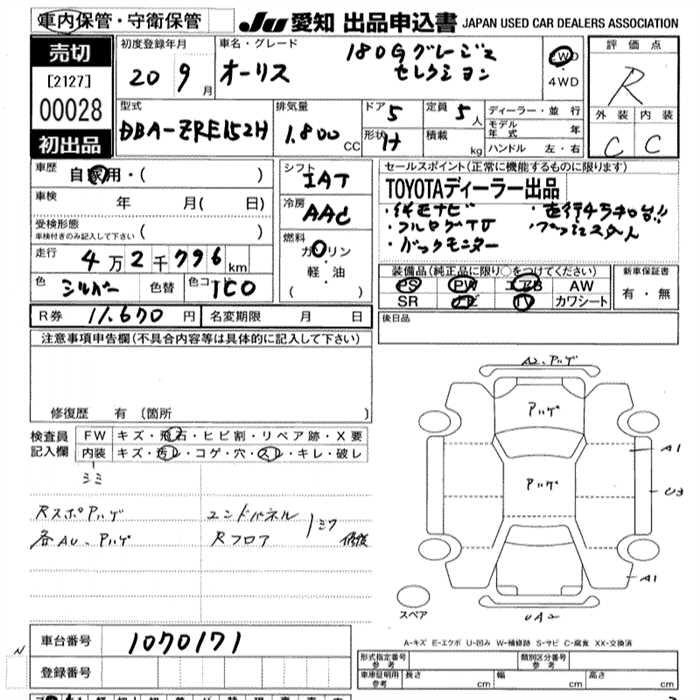 車内保管・守衛保管
JU 愛知 出品申込書 JAPAN USED CAR DEALERS ASSOCIATION
売切
[2127]
00028
初出品
初度登録年月
20 9 月
車名・グレード
オーリス
180G グレージュ
セレクション
2WD
・
4WD
評価点
R
外装 内装
C C
型式
DBA-ZRE152H
排気量
1.800 CC
ドア 5
形状 H
定員 5 人
積載 kg
ディーラー・並行
モデル年式 年
ハンドル 左・右
車歴
自家用・( )
車検 年 月( 日)
受検形態
車検付きのみ記入して下さい ( )
走行 4万2千776 km
色 シルバー 色替 色コ 1C0
シフト
IAT
冷房
AAC
燃料
ガソリン
・
軽・油
( )
セールスポイント(正常に機能するものに限ります)
TOYOTAディーラー出品
・純正ナビ
・フルセグTV
・バックモニター
装備品(純正品に限り○をつけてください)
PS PW エアB AW
SR ナビ TV カワシート
新車保証書
有・無
R券 11.670 円 名変期限 月 日
後日品
注意事項申告欄(不具合内容等は具体的に記入して下さい)
修復歴 有 (箇所 )
検査員
記入欄
FW キズ・飛石・ヒビ割・リペア跡・X要
内装 キズ・汚レ・コゲ・穴・スレ・キレ・破レ
Rスポアハゲ
各AU、アハゲ
エンドパネル
Rフロア
修復
A2、アハゲ
アハゲ
アハゲ
A1
U3
A1
UA2
スペア
A-キズ E-エクボ U-凹み W-補修跡 S-サビ C-腐食 XX-交換済
車台番号 1070171
登録番号
形式指定番号
参考
類別区分番号
参考
車庫証明用
参考
長さ cm 幅 cm 高さ cm